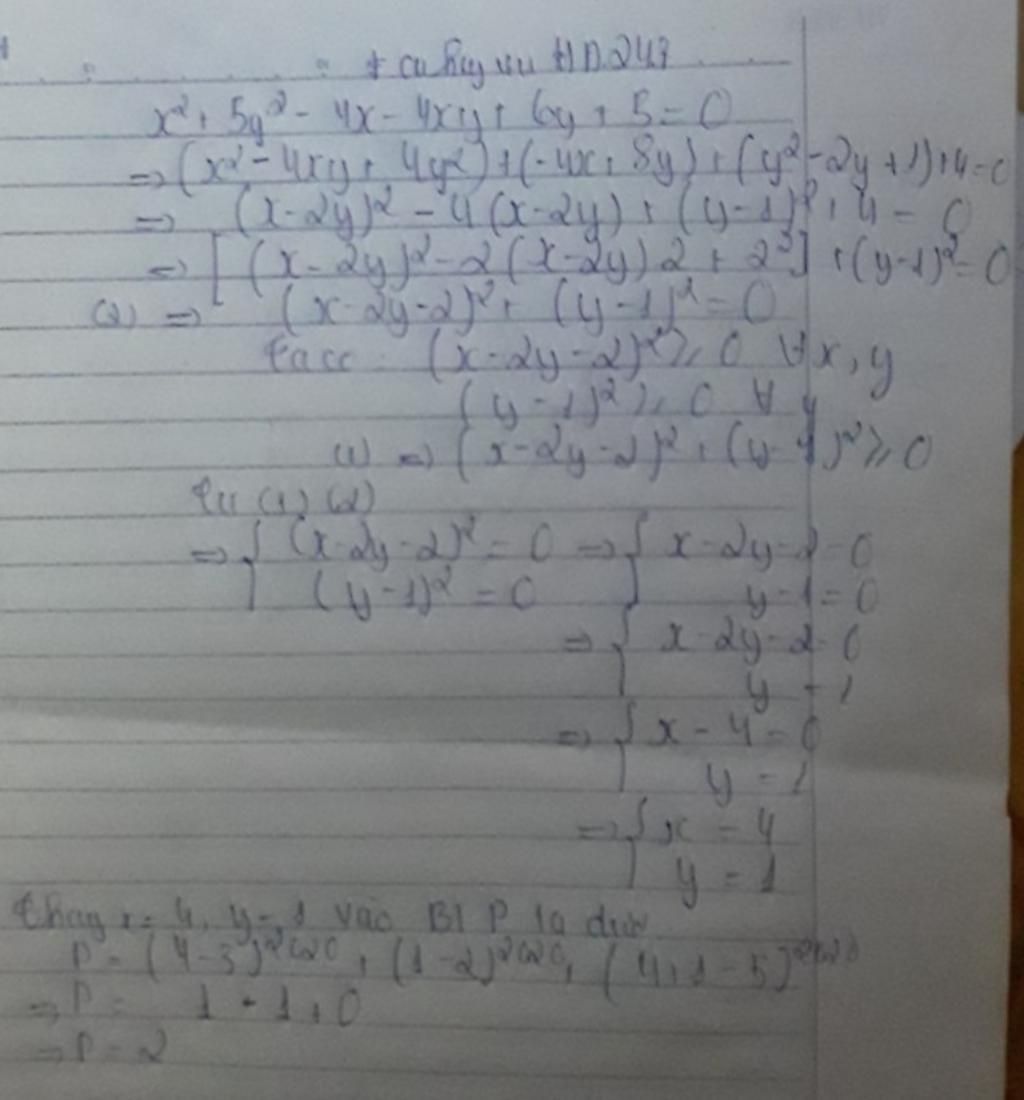 x² + 5y² - 4x - 4xy + 6y + 5 = 0
=> (x² - 4xy + 4y²) + (-4x + 8y) + (y² - 2y + 1) + 4 = 0
=> (x-2y)² - 4(x-2y) + (y-1)² + 4 = 0
=> [(x-2y)² - 2(x-2y)2 + 2²] + (y-1)² = 0
(2) => (x-2y-2)² + (y-1)² = 0
(x-2y-2)² ≥ 0 ∀ x, y
(y-1)² ≥ 0 ∀ y
(1) => (x-2y-2)² + (y-1)² ≥ 0
(1) (2)
=> { (x-2y-2)² = 0 => { x-2y-2 = 0
(y-1)² = 0 y-1 = 0
=> { x-2y-2 = 0
y = 1
=> { x - 4 = 0
y = 1
=> { x = 4
y = 1
thay x = 4, y = 1 vào BT P ta được
P = (4-3)²⁰²⁰ + (1-2)²⁰²⁰ + (4+1-5)²⁰²⁰
=> P = 1 + 1 + 0
=> P = 2